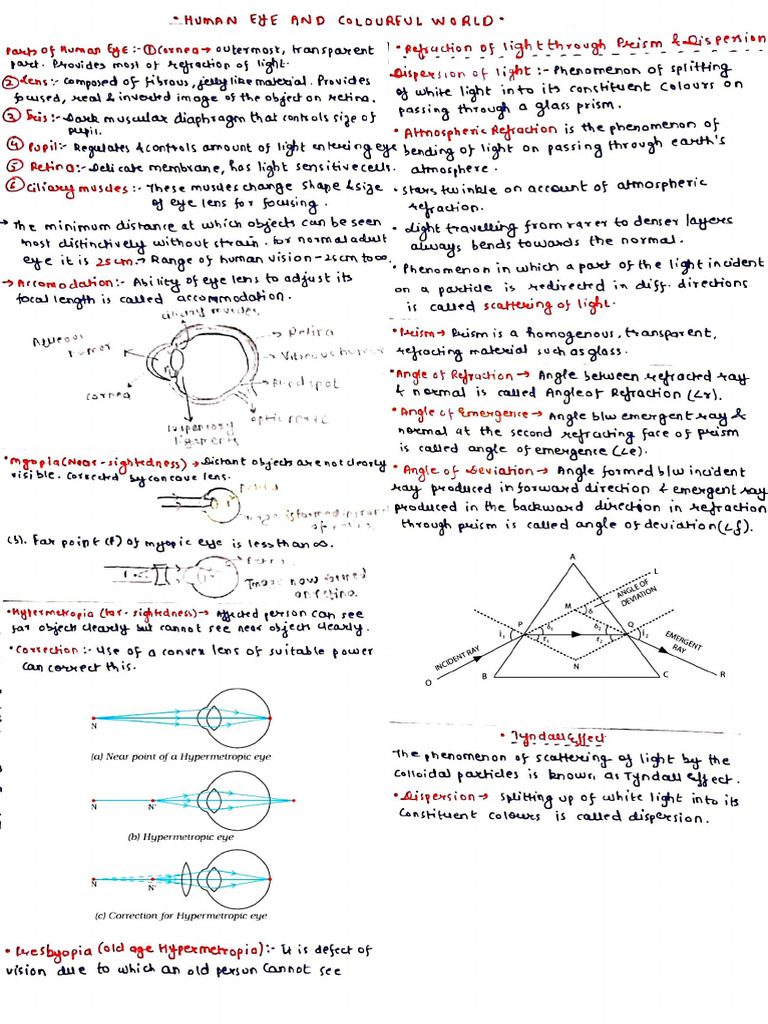 • HUMAN EYE AND COLOURFUL WORLD •
Parts of Human Eye :- ① Cornea → outermost, transparent
part. Provides most of refraction of light.
② Lens :- composed of fibrous, jelly like material. Provides
focused, real & inverted image of the object on retina.
③ Iris :- Dark muscular diaphragm that controls size of
pupil.
④ Pupil :- Regulates & controls amount of light entering eye
⑤ Retina :- Delicate membrane, has light sensitive cells.
⑥ Ciliary muscles :- These muscles change shape & size
of eye lens for focusing.
→ The minimum distance at which objects can be seen
most distinctively without strain. for normal adult
eye it is 25cm. → Range of human vision - 25cm to ∞.
→ Accomodation :- Ability of eye lens to adjust its
focal length is called accommodation.
ciliary muscles
Aqueous
humor
cornea
Retina
Vitreous humor
Blind spot
optic nerve
suspensory
ligaments
• Myopia (Near-sightedness) → Distant objects are not clearly
visible. Corrected by concave lens.
Retina
Image is formed in front
of retina
(3). Far point (F) of myopic eye is less than ∞.
F
Image now formed
on retina
• Hypermetropia (far-sightedness) → Affected person can see
far objects clearly but cannot see near objects clearly.
• Correction :- Use of a convex lens of suitable power
can correct this.
N
(a) Near point of a Hypermetropic eye
N N'
(b) Hypermetropic eye
N N'
(c) Correction for Hypermetropic eye
• Presbyopia (old age Hypermetropia) :- It is defect of
vision due to which an old person cannot see
• Refraction of light through Prism & Dispersion
Dispersion of light :- Phenomenon of splitting
of white light into its constituent colours on
passing through a glass prism.
• Atmospheric Refraction is the phenomenon of
bending of light on passing through earth's
atmosphere.
• stars twinkle on account of atmospheric
refraction.
• Light travelling from rarer to denser layers
always bends towards the normal.
• Phenomenon in which a part of the light incident
on a particle is redirected in diff. directions
is called scattering of light.
• Prism → Prism is a homogenous, transparent,
refracting material such as glass.
• Angle of Refraction → Angle between refracted ray
& normal is called Angle of Refraction (∠r).
• Angle of Emergence → Angle b/w emergent ray &
normal at the second refracting face of prism
is called angle of emergence (∠e).
• Angle of Deviation → Angle formed b/w incident
ray produced in forward direction & emergent ray
produced in the backward direction in refraction
through prism is called angle of deviation (∠δ).
A
L
M δ
ANGLE OF
DEVIATION
P Q
i₁ δ₁ r₁ δ₂ r₂ i₂
N
INCIDENT RAY
EMERGENT
RAY
O B C R
• Tyndall Effect
The phenomenon of scattering of light by the
colloidal particles is known as Tyndall Effect.
• Dispersion → splitting up of white light into its
constituent colours is called dispersion.